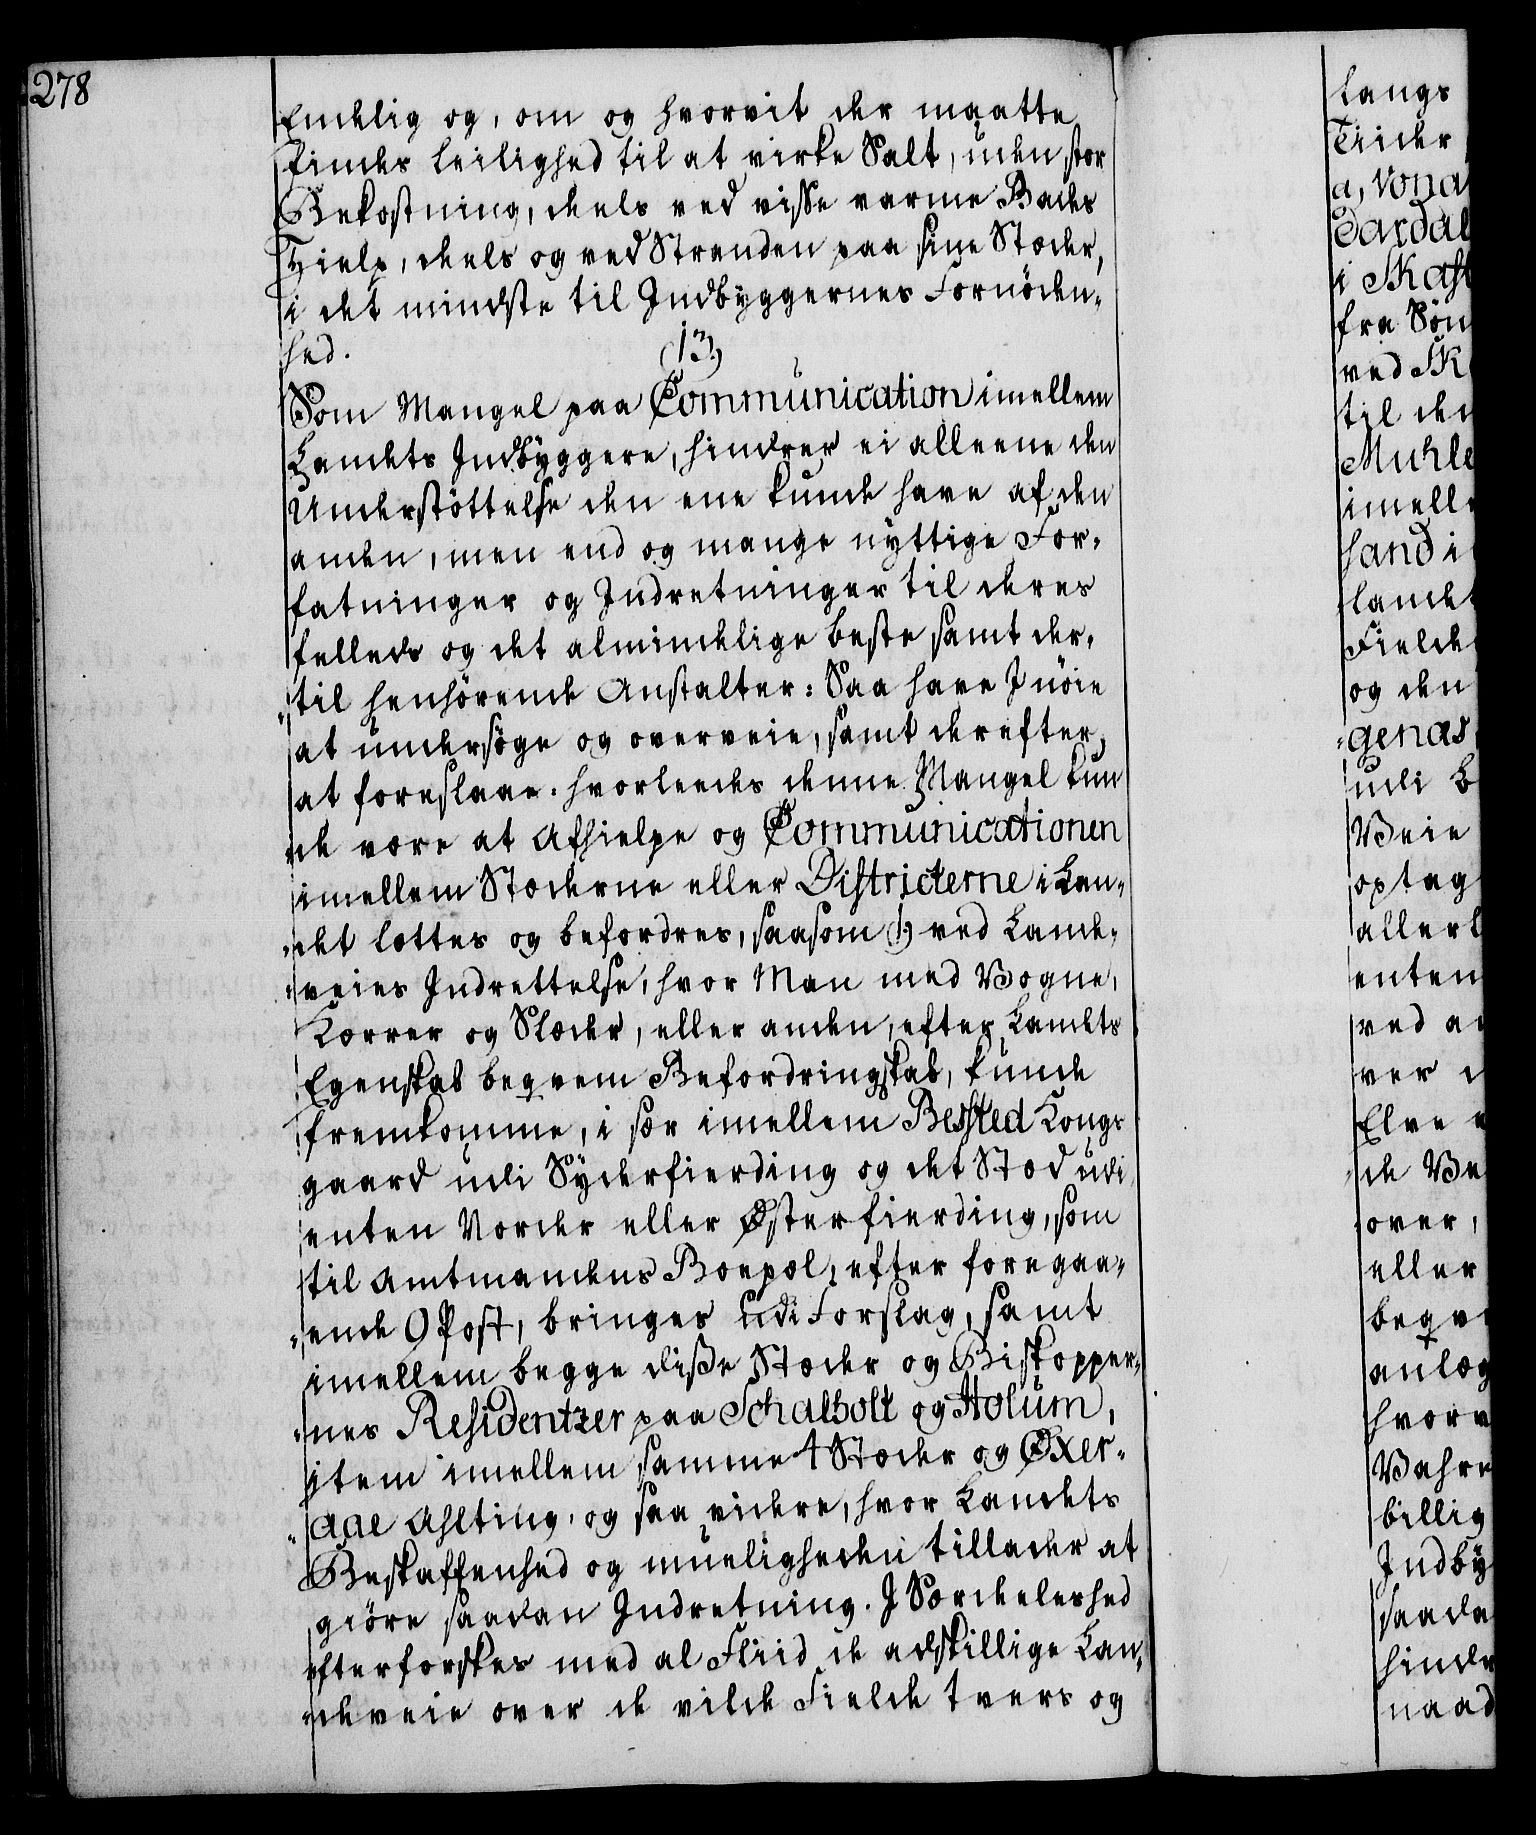 278
Endelig og, om og hvorvit der maatte
findes leilighed til at virke Salt, uden stor
Bekostning, deels ved visse varme Bades
Hielp, deels og ved Stranden paa sine Stæder,
i det mindste til Indbyggernes Fornöden-
hed.
13)
Som Mangel paa Communication imellem
Landets Indbyggere, hindrer ei alleene den
Understöttelse den ene kunde have af den
anden, men end og mange nyttige For-
fatninger og Indretninger til deres
felleds og det almindelige beste samt der-
til henhörende Anstalter: Saa have I nöie
at undersöge og overveie, samt derefter
at foreslaae. hvorleedes denne Mangel kun
de være at Afhielpe og Communicationen
imellem Stæderne eller Districterne i Lan-
det lættes og befordres, saasom 1) ved Lande-
veies Indrettelse, hvor Man med Vogne,
Kærrer og Slæder, eller anden, efter Landets
Egenskab beqvem Befordringskab, kunde
fremkomme, i sær imellem Bessted Kongs
gaard udi Syderfierding og det Stæd udi
enten Norder eller Østerfierding, som
til Amtmandens Boepæl, efter foregaa-
ende 9 Post, bringes udi Forslag, samt
imellem begge disse Stæder og Biskopper-
nes Residentzer paa Schalholt og Holum,
item imellem samme 4 Stæder og Øxer-
aae Ahlting, og saa videre, hvor Landets
Beskaffenhed og mueligheden tillader at
giöre saadan Indretning. I Særdeleshed
efterforskes med al Fliid de adskillige Lan-
deveie over de vilde Fielde tvers og
langs
Tiider
a, Vona
dardal
i Skaft
fra Sön
ved Sk
til den
Muhle
imelle
hand i
landet
Fielde
og den
genas
udi B
Veie
optag
allerl
enten
ved a
ver
Elve
de Ve
over,
eller
beqve
anlæg
hvorv
Vahre
billig
Indby
saada
hindr
naad